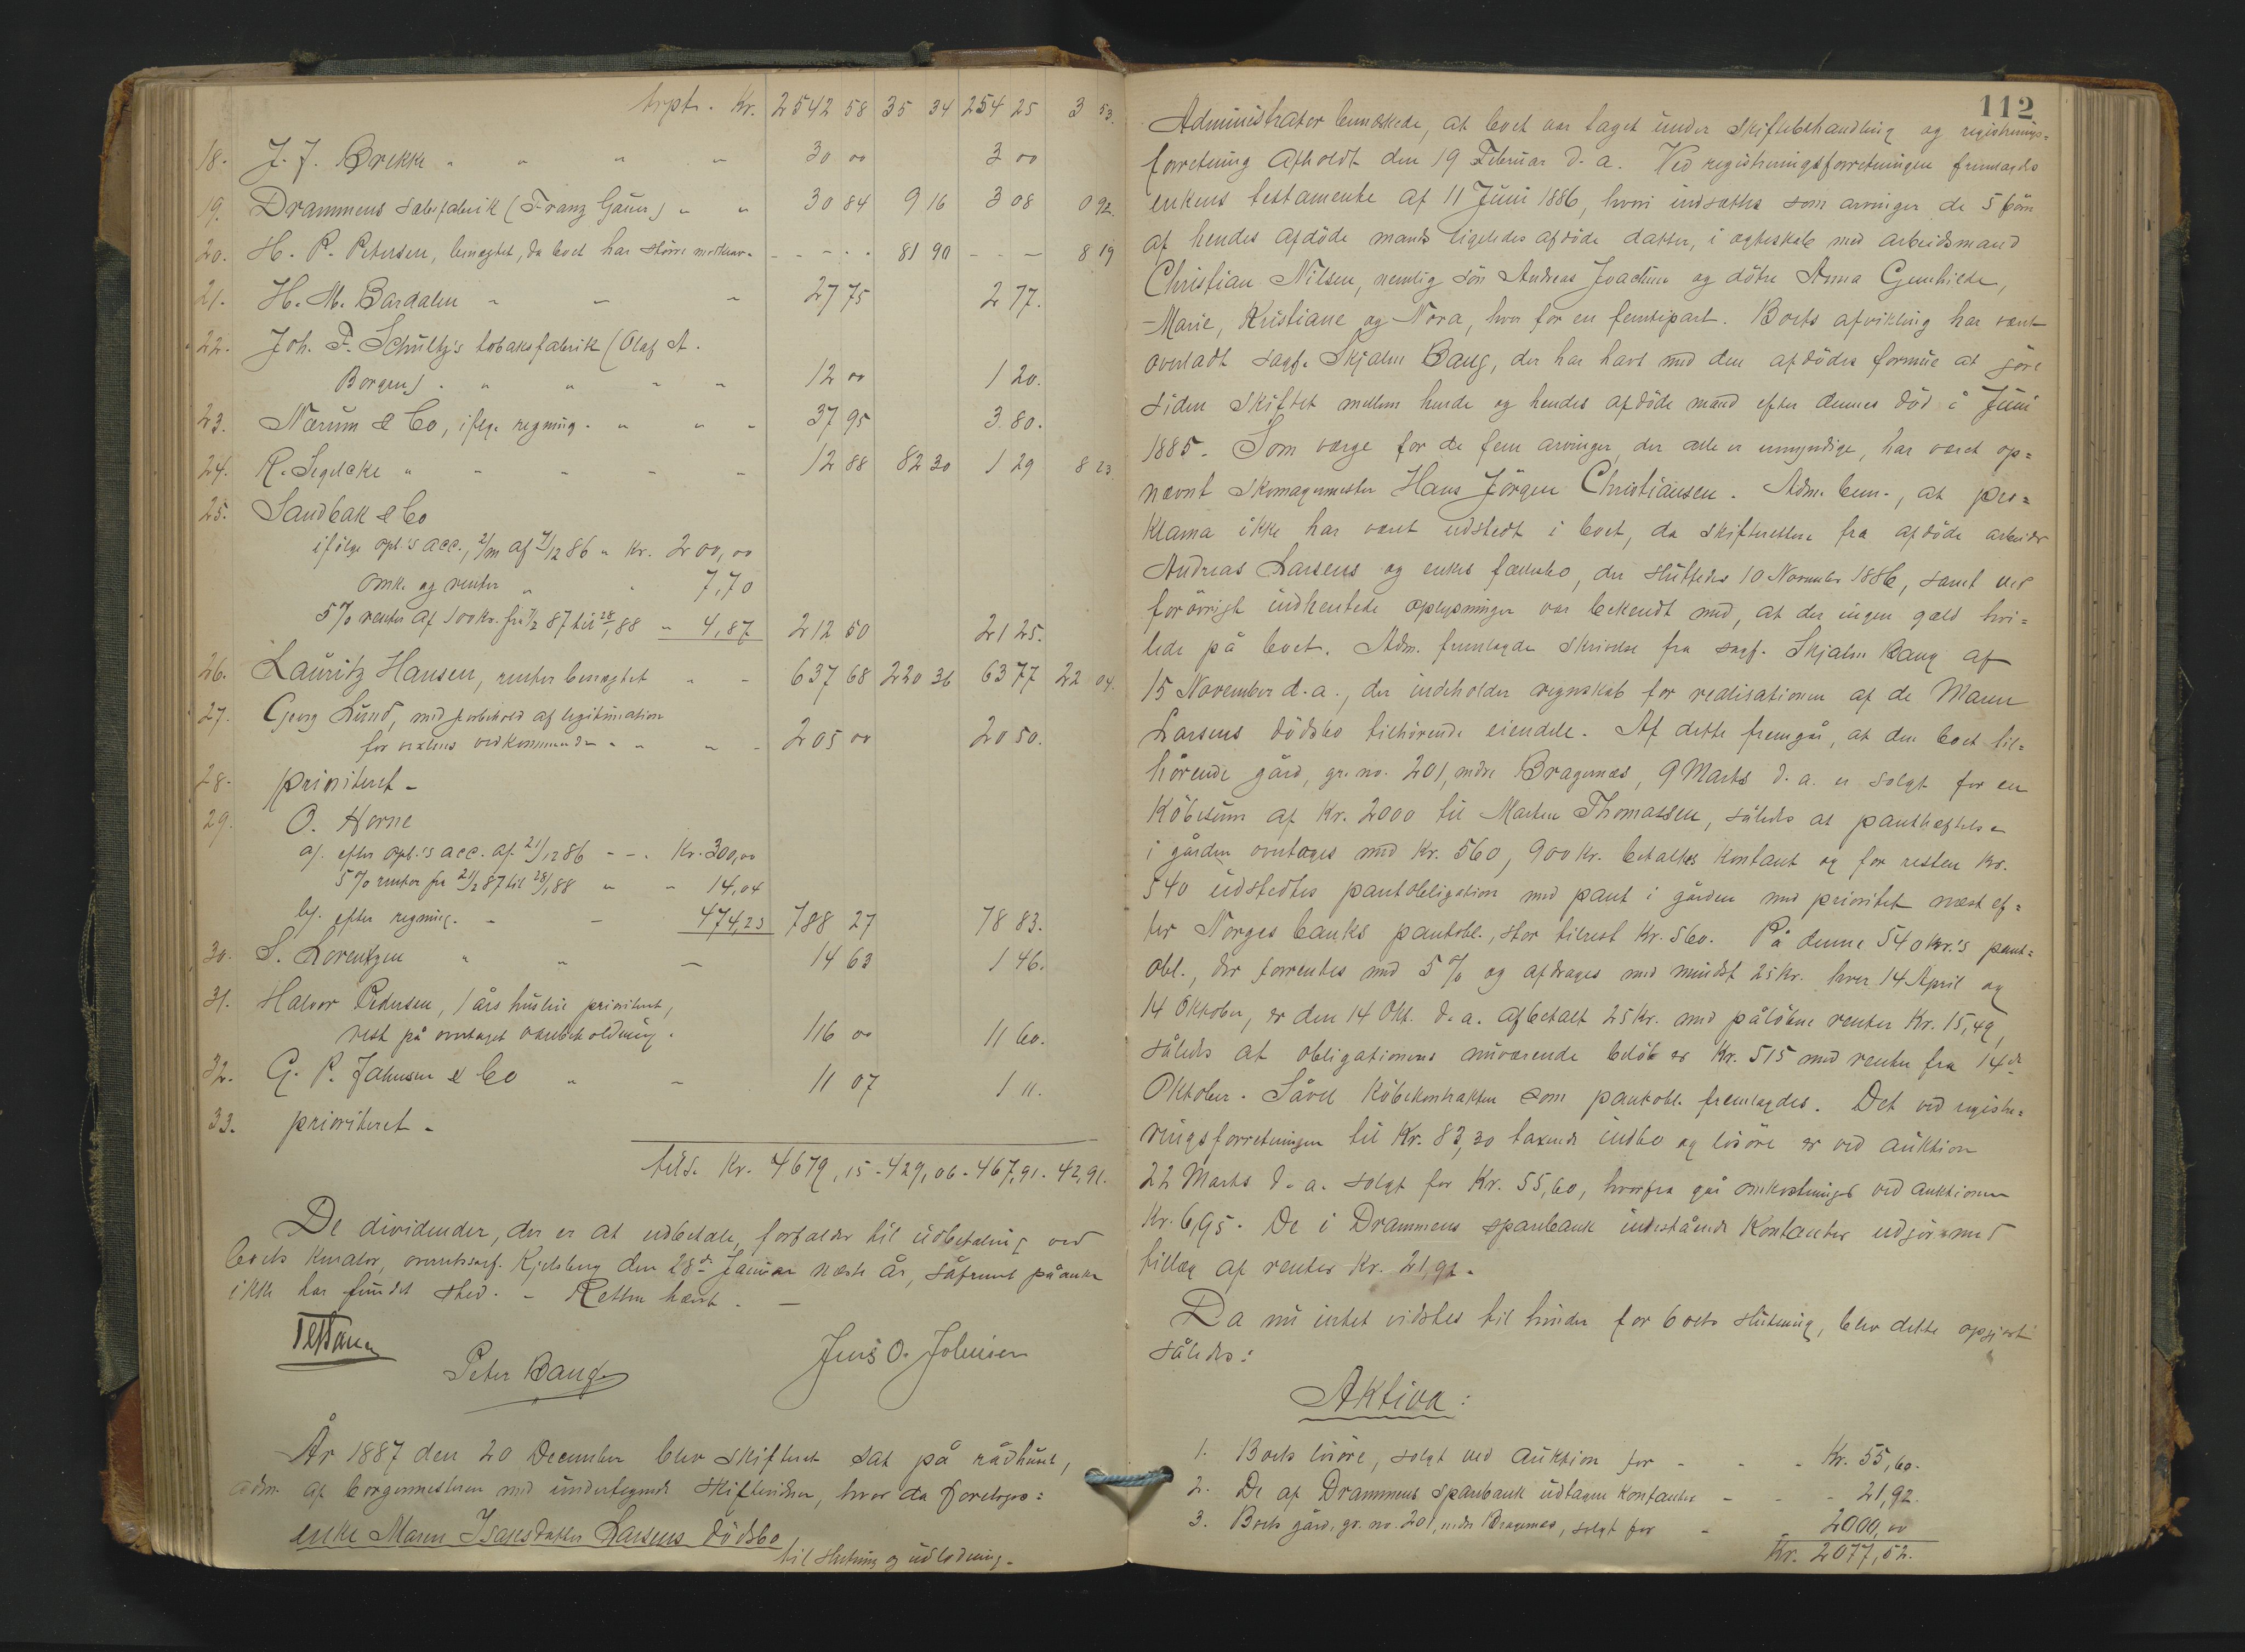 trpt. Kr. 2542 58 35 34 254 25 3 53.
18. J. J. Brekke " " " " 30 00 3 00
19. Drammens sæbefabrik (Franz Gaun) " " 30 84 9 16 3 08 0 92.
20. H. P. Petersen, benægtet, da boet har större modkrav. - - - - - 81 90 - - - 8 19
21. H. M. Bardalen " " " 27 75 2 77.
22. Joh. F. Schultz's tobaksfabrik (Olaf A.
Borgen) " " " " " 12 00 1 20.
23. Nærum & Co, ifölge regning " " " 37 95 3 80.
24. R. Segelcke " " " " " 12 88 82 30 1 29 8 23.
25. Sandbak & Co
ifölge opb's acc., 2/m af 7/12 86 " Kr. 200,00
Omk. og renter " " 7,70
5% renter af 100 Kr. fra 7/2 87 til 28/1 88 " 4,87 212 50 21 25.
26. Lauritz Hansen, renter benægtet " " 637 68 220 36 63 77 22 04.
27. Georg Lund, med forbehold af legitimation
for vexlens vedkommende " " " " 205 00 20 50.
28. prioriteret -
29. O. Horne
a/. efter opb.'s acc. af 21/12 86 - - . Kr. 300,00
5% renter fra 21/2 87 til 28/1 88 " " 14,04
b/. efter regning. - - 474,23 788 27 78 83.
30. S. Lorentzen " " - 14 63 1 46.
31. Halvor Pedersen, 1 års husleie prioriteret,
rest på overtaget varebeholdning. 116 00 11 60.
32. G. P. Johnsen & Co " - 11 07 1 11.
33. prioriteret -
tils. Kr. 4679,15 - 429,06 - 467,91 - 42,91.
De dividender, der er at udbetale, forfalder til udbetaling ved
boets kurator, overretssagf. Kjelsberg den 28de Januar næste år, såfremt påanke
ikke har fundet sted. - Retten hævet. -
Peter Bang
Jens O. Johnsen
År 1887 den 20 December blev skifteret sat på rådhuset,
adm. af borgermesteren med undertegnede skiftevidner, hvor da foretoges:
enke Maren Isaksdatter Larsens dödsbo
til slutning og udlodning.
112
Administrator bemærkede, at boet var taget under skiftebehandling og registrerings=
forretning afholdt den 19 Februar d. a. Ved registreringsforretningen fremlagdes
enkens testamente af 11 Juni 1886, hvori indsættes som arvinger de 5 börn
af hendes afdöde mands ligeledes afdöde datter, i ægteskab med arbeidsmand
Christian Nilsen, nemlig sön Andreas Joachim og dötre Anna Gunhilde,
Marie, Kristiane og Nora, hver for en femtipart. Boets afvikling har været
overladt sagf. Skjalm Bang, der har havt med den afdödes formue at göre
siden skiftet mellem hende og hendes afdöde mand efter dennes död i Juni
1885. Som værge for de fem arvinger, der alle er umyndige, har været op=
nævnt skomagermester Hans Jörgen Christiansen. Adm. bem., at pro=
klama ikke har været udstedt i boet, da skifteretten fra afdöde arbeider
Andreas Larsens og enkes fællesbo, der sluttedes 10 November 1886, samt ved
forövrigt indhentede oplysninger var bekendt med, at der ingen gæld hvi=
lede på boet. Adm. fremlagde skrivelse fra sagf. Skjalm Bang af
15 November d. a., der indeholder regnskab for realisationen af de Maren
Larsens dödsbo tilhörende eiendele. Af dette fremgår, at den boet til=
hörende gård, gr. no. 201, nedre Bragernæs, 9 Marts d. a. er solgt for en
Köbesum af Kr. 2000 til Marten Thomassen, således at panthæftelsen
i gården overtages med Kr. 560, 900 Kr. betaltes kontant og for resten Kr.
540 udstedtes pantobligation med pant i gården med prioritet næst ef=
ter Norges banks pantobl., stor tilrest Kr. 560. På denne 540 Kr.'s pant=
obl., der forrentes med 5% og afdrages med mindst 25 Kr. hver 14 April og
14 Oktober, er den 14 Okt. d. a. afbetalt 25 Kr. med pålöbne renter Kr. 15,49,
således at obligationens nuværende belöb er Kr. 515 med renter fra 14de
Oktober. Såvel Köbekontrakten som pantobl. fremlagdes. Det ved registre=
ringsforretningen til Kr. 83,30 taxerede indbo og lösöre er ved auktion
22 Marts d. a. solgt for Kr. 55,60, hvorfra går omkostninger ved auktionen
Kr. 6,95. De i Drammens sparebank indestående Kontanter udgjör med
tillæg af renter Kr. 21,92.
Da nu intet vidstes til hinder for boets slutning, blev dette opgjort
således:
Aktiva:
1. Boets lösöre, solgt ved auktion for - - - Kr. 55,60.
2. De af Drammens sparebank udtagne Kontanter - - - 21,92.
3. Boets gård, gr. no. 201, nedre Bragernæs, solgt for - - 2000,00
Kr. 2077,52.